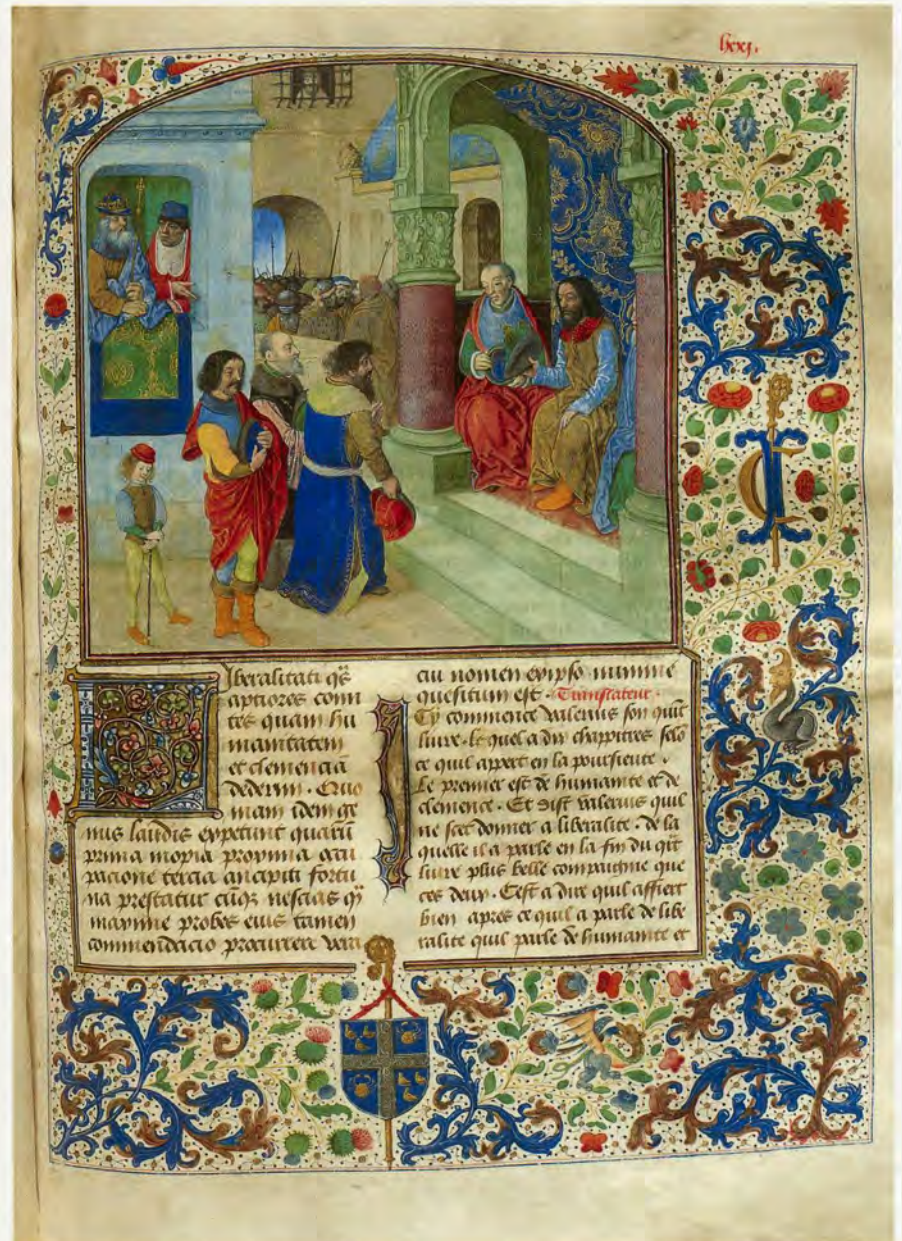 lxxxj.
Liberalitati q̄s
aptiores comi
tes quam hu
manitatem
et clemenciā
dederim · Quo
niam idem ge
nus laudis expetunt quarū
prima inopia proxima occu
pacione tercia ancipiti fortu
na prestatur cūq̨ nescias q̄
maxime probes eius tamen
commendacio procurrere vera
cui nomen ex ipso numine
quesitum est · Translateur ·
Cy commence valerius son quīt
liure · le quel a dix chappitres selō
ce quil appert en la poursieute ·
Le premier est de humanite et de
clemence · Et dist valerius quil
ne scet donner a liberalite · de la
quelle il a parle en la fin du q̄rt
liure plus belle compaignie que
ces deux · Cest a dire quil affiert
bien apres ce quil a parle de libe
ralite quil parle de humanite et